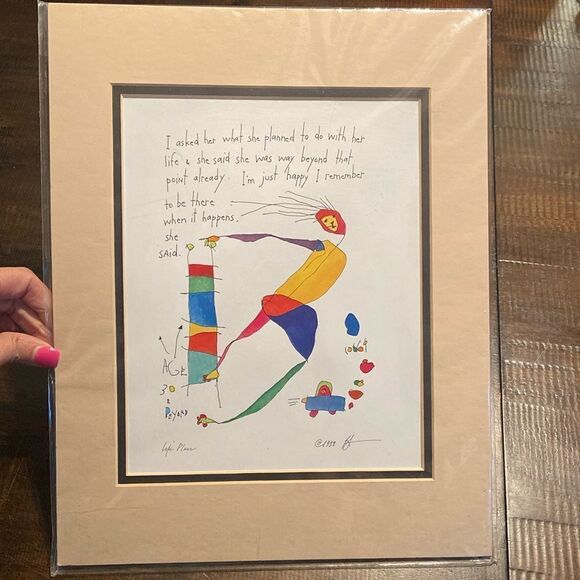 I asked her what she planned to do with her
life & she said she was way beyond that
point already. I'm just happy I remember
to be there
when it happens,
she
said.
AGE
30
&
BEYOND
Life Plan
©1999